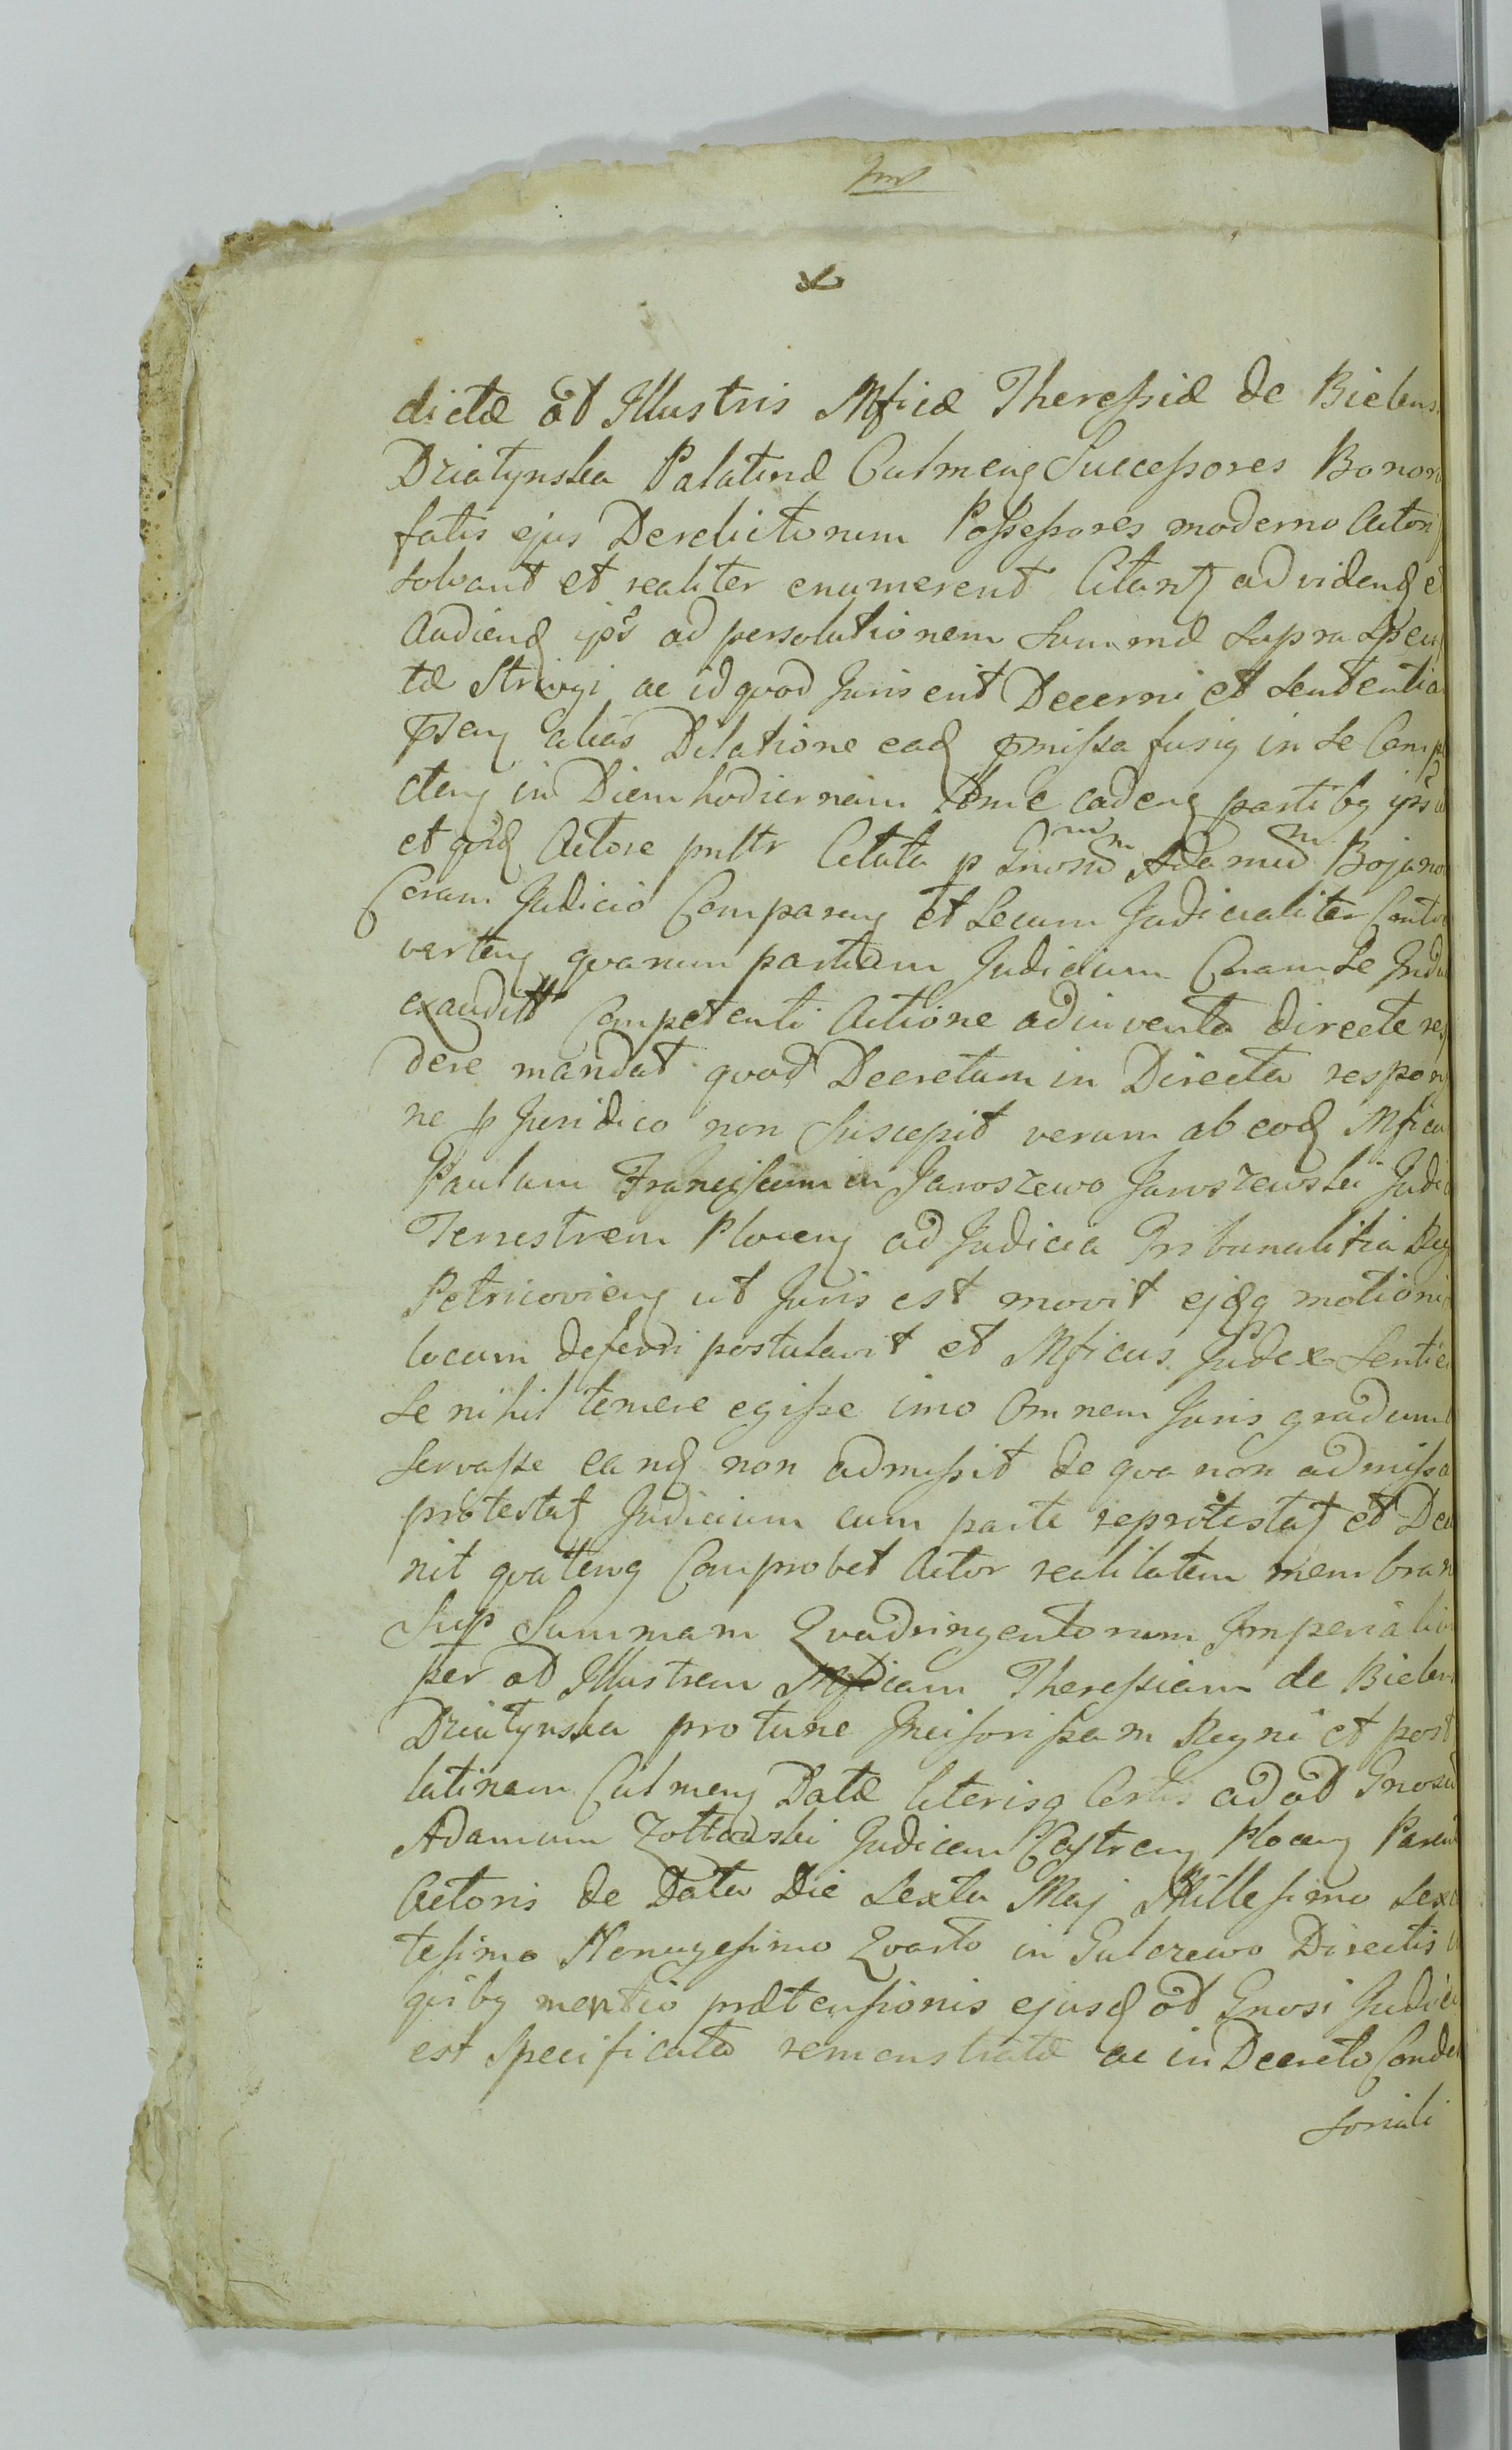 dictæ ol Illustris Mficæ Theressiæ de Bielens
Działynska Palatinæ Culmeng Successores Bonor
fatis ejus Derelictorum Possessores moderno Actori
solvant et realiter enumerent Citantꝭ ad videndꝭ et
Audiendꝭ ipŝ ad persolutionem Summæ supra Speci
tæ Stringi ac id quod Juris erit Decerni et Sententia
alias Dilatione eadꝭ pmissa fusig in se Comp
cteng in Diem hodiernam cadeng partibg ips
et Actore Citata p Gnosũ Adamũ Bojano
Coram Judicio Compareng et Secum Judicialiter Contro
verteng quarum partium Judicium Coram se
exaudittꝭ Competenti Actione adinventa directe res
dere mandat quod Decretum in Directa respon
ne p Juridico non Suscepit verum ab eodꝭ Mficu
Paulum Franciscum in Jaroszewo Jaroszewski Judic
Terrestrem Ploceng ad Judicia Tribunalitia Reg
Petricovieng ut Juris est movit ejqg motioni
locum deferri postulavit et Mficus Judex Sentie
Se nihil temere egisse imo Omnem Juris gradum
Servasse eandꝭ non admissit de qua non admissa
protestatꝭ Judicium cum parte reprotestatꝭ et Dec
nit quateng Comprobet Actor realitatem membran
Sup Summam Quadringentorum Imperialiu
per ol Illustrem Mficam Theressiam de Bielen
Działynska protunc Incisorissam Regni et post
latinam Culmeng Datæ literisq Certis ad ol Gnosũ
Adamum Zołtowski Judicem Castreng Ploceng Paren
Actoris de Data Die Sexta Maj Millesimo Sexc
tesimo Nonagesimo Quarto in Gulczewo Directis
qui bg mentio prætensionis ejusdꝭ ol Gnosi Judici
est Specificata remonstratæ ac in Decreto Conde
soriali